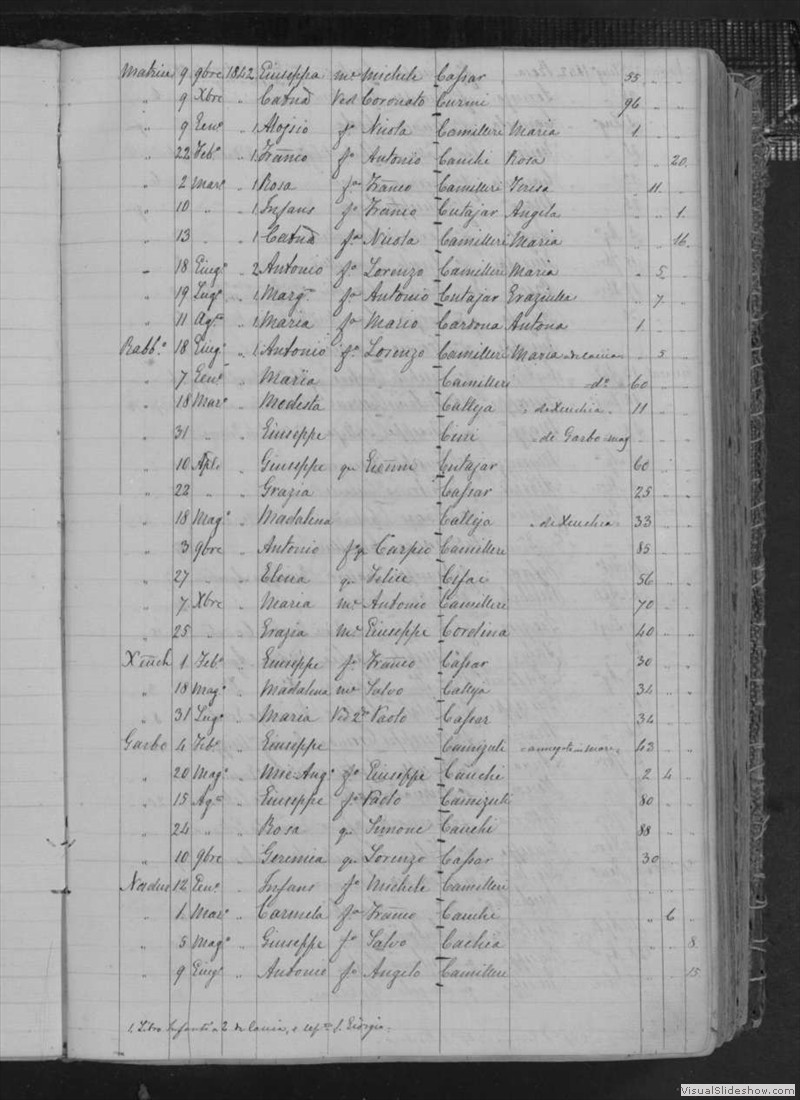 Matrice 9 9bre 1842 Giuseppa mr Michele Cassar 55 " "
" 9 Xbre " Catnа Ved Coronato Curmi 96 " "
" 9 Gen° " 1 Aloisio f° Nicola Camilleri Maria 1 " "
" 22 Feb° " 1 Franco f° Antonio Cauchi Rosa " " 20
" 2 Mar° " 1 Rosa fa Franco Camilleri Teresa " 11 "
" 10 " " 1 Infans f° Franco Cutajar Angela " " 1
" 13 " " 1 Catnа fa Nicola Camilleri Maria " " 16
" 18 Giug° " 2 Antonio f° Lorenzo Camilleri Maria " 5 "
" 19 Lug° " 1 Marg fa Antonio Cutajar Graziulla " 7 "
" 11 Ag° " 1 Maria fa Mario Cardona Antona 1 " "
Rabb° 18 Giug° " 1 Antonio f° Lorenzo Camilleri Maria " 5 "
" 7 Gen° " Maria Camilleri d° 60
" 18 Mar° " Modesta Calleja de Xeuchia 11
" 31 " " Giuseppe Cini de Garbo
" 10 Aple " Giuseppe qu Cutajar 60
" 22 " " Grazia Cassar 25
" 18 Mag° " Madalena Calleja de Xeuchia 33
" 3 9bre " Antonio Carpio Camilleri 85
" 27 " " Elena qu Felice 56
" 7 Xbre " Maria mr Antonio Camilleri 70
" 25 " " Grazia mr Giuseppe Cordina 40
Xeuch 1 Feb° " Giuseppe f° Franco Cassar 30
" 18 Mag° " Madalena mr Salvo Calleja 34
" 31 Lug° " Maria Ved 2a Paolo Cassar 34
Garbo 4 Feb° " Giuseppe Camizuli annegato in mare 43
" 20 Mag° " Mic-Ang° f° Giuseppe Cauchi 2 4 "
" 15 Ag° " Giuseppe f° Paolo Camizuli 80
" 24 " " Rosa qu Simone Cauchi 88
" 10 9bre " Geremia qu Lorenzo Cassar 30
Nadur 12 Gen° " Infans f° Michele Camilleri " " "
" 1 Mar° " Carmela fa Franco Cauchi " 6 "
" 5 Mag° " Giuseppe f° Salvo Cachia " " 8
" 9 Giug° " Antonio f° Angelo Camilleri 15
1. Libro Infanti 2 de Giorgio
VisualSlideshow.com